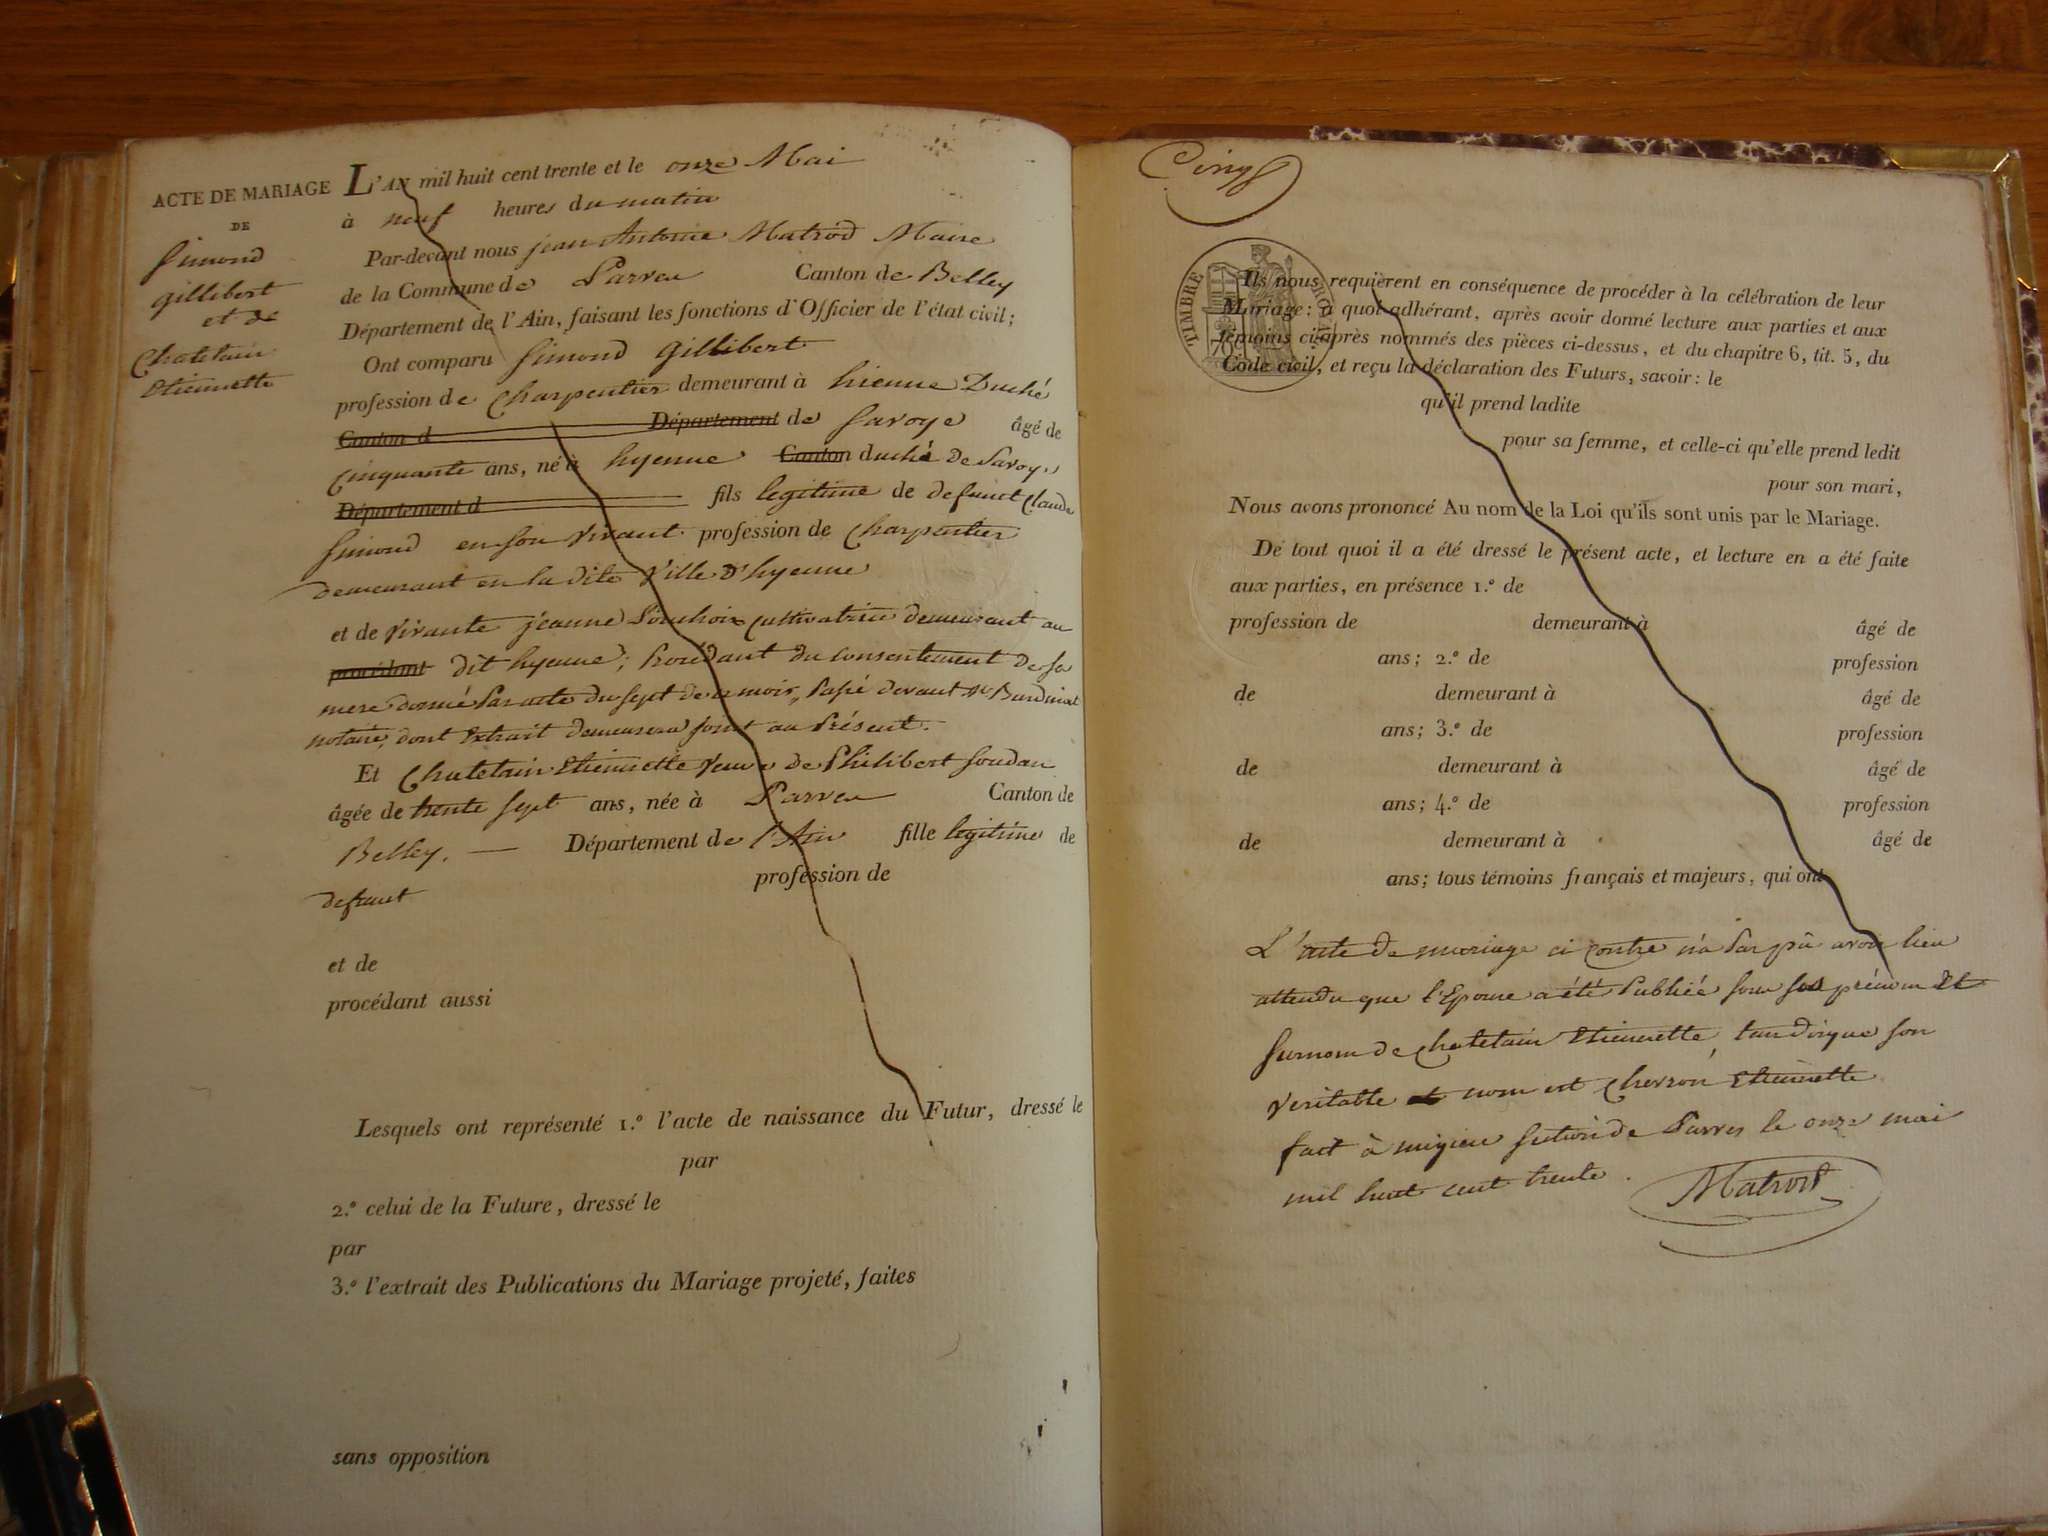 ACTE DE MARIAGE
DE
Simond
Gillibert
et de
Chatelain
Etiennette
L'AN mil huit cent trente et le onze Mai
à neuf heures du matin
Par-devant nous jean Antoine Matrod Maire
de la Commune de Parves Canton de Belley
Département de l'Ain, faisant les fonctions d'Officier de l'état civil;
Ont comparu Simond Gillibert
profession de Charpentier demeurant à hienne Duché
Canton d Département de Savoye âgé de
Cinquante ans, né à hyenne Canton duché de Savoye
Département d fils legitime de defunt Claude
Simond en son vivant profession de Charpentier
demeurant en la dite Ville d'hyenne
et de vivante jeanne cultivatrice demeurant au
procédant dit hyenne; procédant du consentement de sa
mere donné par acte du sept de ce mois, passé devant Me
notaire, dont Extrait demeurera joint au présent.
Et Chatelain Etiennette veuve de Philibert Soudan
âgée de trente sept ans, née à Parves Canton de
Belley. — Département de l'Ain fille legitime de
defunt profession de
et de
procédant aussi
Lesquels ont représenté 1.º l'acte de naissance du Futur, dressé le
par
2.º celui de la Future, dressé le
par
3.º l'extrait des Publications du Mariage projeté, faites
sans opposition
Cinq
TIMBRE ROYAL
70c
Ils nous requièrent en conséquence de procéder à la célébration de leur
Mariage: à quoi adhérant, après avoir donné lecture aux parties et aux
témoins ci-après nommés des pièces ci-dessus, et du chapitre 6, tit. 5, du
Code civil, et reçu la déclaration des Futurs, savoir: le
qu'il prend ladite
pour sa femme, et celle-ci qu'elle prend ledit
pour son mari,
Nous avons prononcé Au nom de la Loi qu'ils sont unis par le Mariage.
De tout quoi il a été dressé le présent acte, et lecture en a été faite
aux parties, en présence 1.º de
profession de demeurant à âgé de
ans; 2.º de profession
de demeurant à âgé de
ans; 3.º de profession
de demeurant à âgé de
ans; 4.º de profession
de demeurant à âgé de
ans; tous témoins français et majeurs, qui ont
L'acte de mariage ci contre n'a pas pû avoir lieu
attendu que l'Epouse a été publiée sous ses prénom et
surnom de Chatelain Etiennette, tandisque son
veritable nom est Chevron Etiennette
fait à migieu section de Parves le onze mai
mil huit cent trente.
Matrod